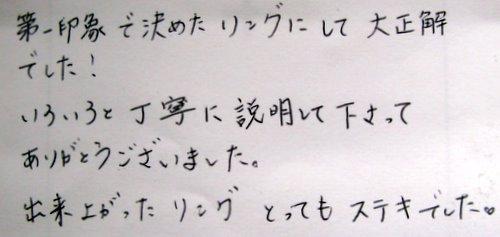 第一印象で決めたリングにして大正解
でした!
いろいろと丁寧に説明して下さって
ありがとうございました。
出来上がったリング とってもステキでした。